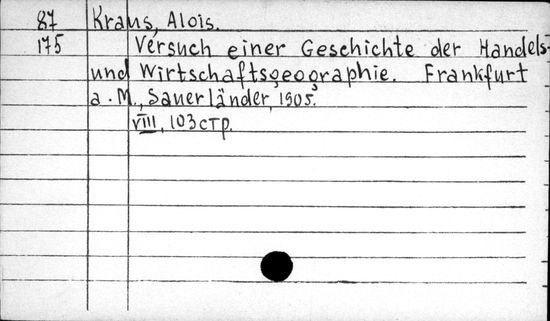 87 Kraus, Alois.
175 Versuch einer Geschichte der Handels-
und Wirtschaftsgeographie. Frankfurt
a. M., Sauerländer, 1905.
VIII, 103 стр.